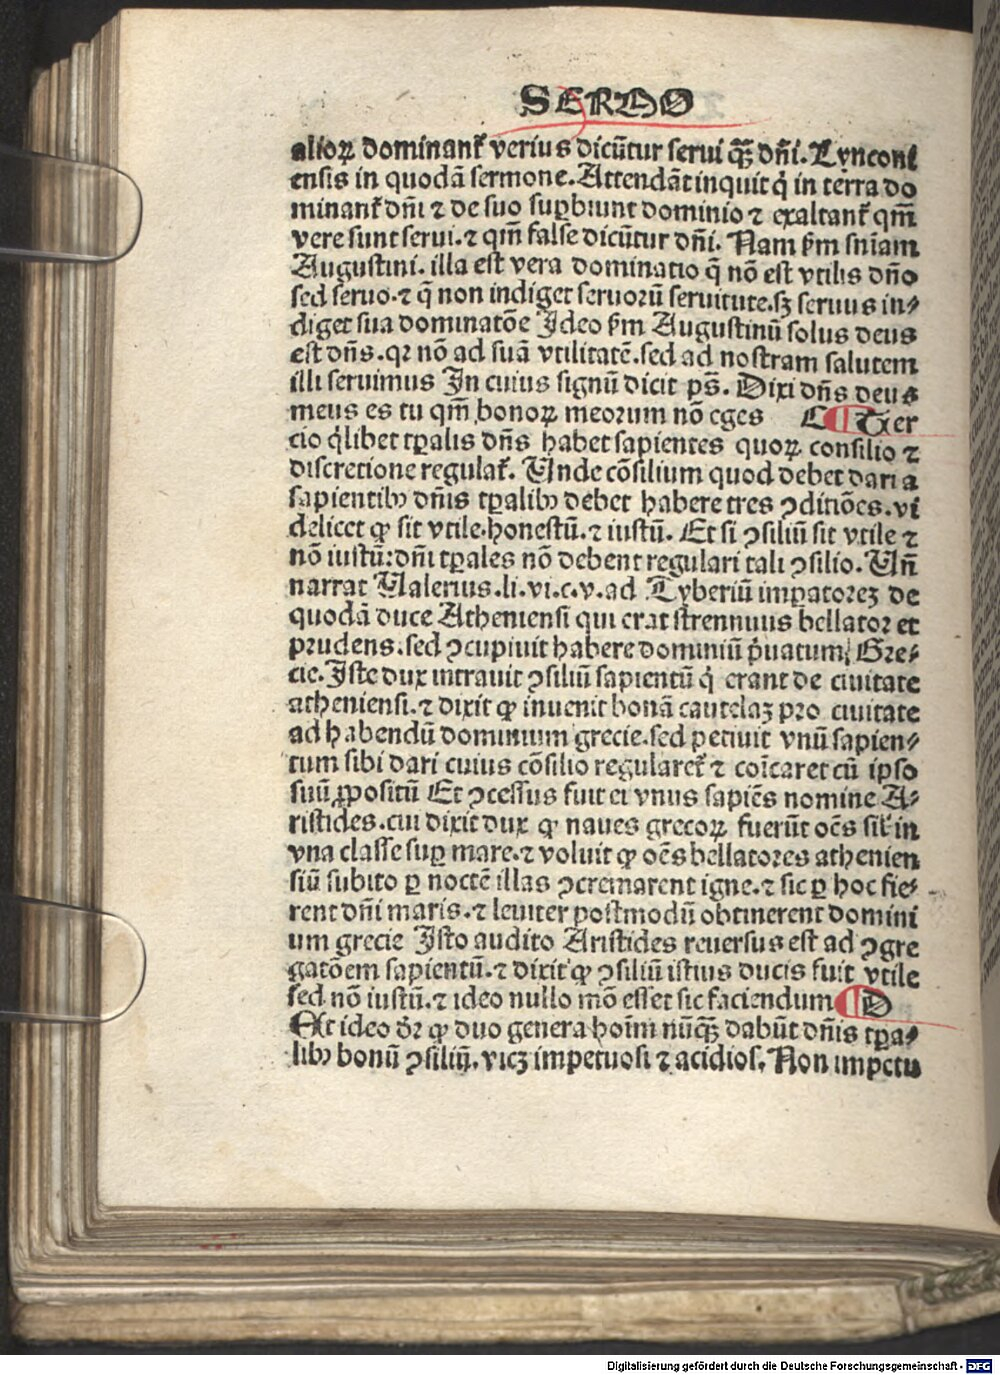 SERMO
alioꝝ dominant᷑ verius dicūtur serui qꝫ̄ dn̄i. Lynconi
ensis in quodā sermone. Attendāt inquit q̇ in terra do
minant᷑ dn̄i ⁊ de suo suꝑbiunt dominio ⁊ exaltant᷑ qm̄
vere sunt serui. ⁊ qm̄ false dicūtur dn̄i. Nam ẜm sn̄iam
Augustini. illa est vera dominatio q̄ nō est vtilis dn̄o
sed seruo. ⁊ q̄ non indiget seruorū seruitute. sꝫ seruus in⸗
diget sua dominatōe Ideo ẜm Augustinū solus deus
est dn̄s. qꝛ nō ad suā vtilitatē. sed ad nostram salutem
illi seruimus In cuius signū dicit ps̄. Dixi dn̄s deus
meus es tu qm̄ bonoꝝ meorum nō eges C ¶ Ter
cio q̇libet tꝑalis dn̄s habet sapientes quoꝝ consilio ⁊
discretione regulat᷑. Unde cōsilium quod debet dari a
sapientibꝰ dn̄is tꝑalibꝰ debet habere tres ꝯditiōes. vi
delicet ꝙ sit vtile. honestū. ⁊ iustū. Et si ꝯsiliū sit vtile ⁊
nō iustū: dn̄i tꝑales nō debent regulari tali ꝯsilio. Un̄
narrat Ualerius. li. vi. c. v. ad Tyberiū imꝑatoreꝫ de
quodā duce Atheniensi qui erat strennuus bellator et
prudens. sed ꝯcupiuit habere dominiū p̍uatum Gre⸗
cie. Iste dux intrauit ꝯsiliū sapientū q̇ erant de ciuitate
atheniensi. ⁊ dixit ꝙ inuenit bonā cautelaꝫ pro ciuitate
ad habendū dominium grecie. sed petiuit vnū sapien⸗
tum sibi dari cuius cōsilio regularet᷑ ⁊ coīcaret cū ipso
suū ꝓpositū Et ꝯcessus fuit ei vnus sapiēs nomine A⸗
ristides. cui dixit dux ꝙ naues grecoꝝ fuerūt oēs sil̓ in
vna classe suꝑ mare. ⁊ voluit ꝙ oēs bellatores athenien
siū subito ꝑ noctē illas ꝯcremarent igne. ⁊ sic ꝑ hoc fie⸗
rent dn̄i maris. ⁊ leuiter postmodū obtinerent domini
um grecie Isto audito Aristides reuersus est ad ꝯgre
gatōem sapientū. ⁊ dixit ꝙ ꝯsiliū istius ducis fuit vtile
sed nō iustū. ⁊ ideo nullo mō esset sic faciendum ¶ D
Et ideo dr̄ ꝙ duo genera hoīm nūqꝫ̄ dabūt dn̄is tꝑa⸗
libꝰ bonū ꝯsiliū. vicꝫ impetuosi ⁊ acidiosi. Non impetu
Digitalisierung gefördert durch die Deutsche Forschungsgemeinschaft - DFG